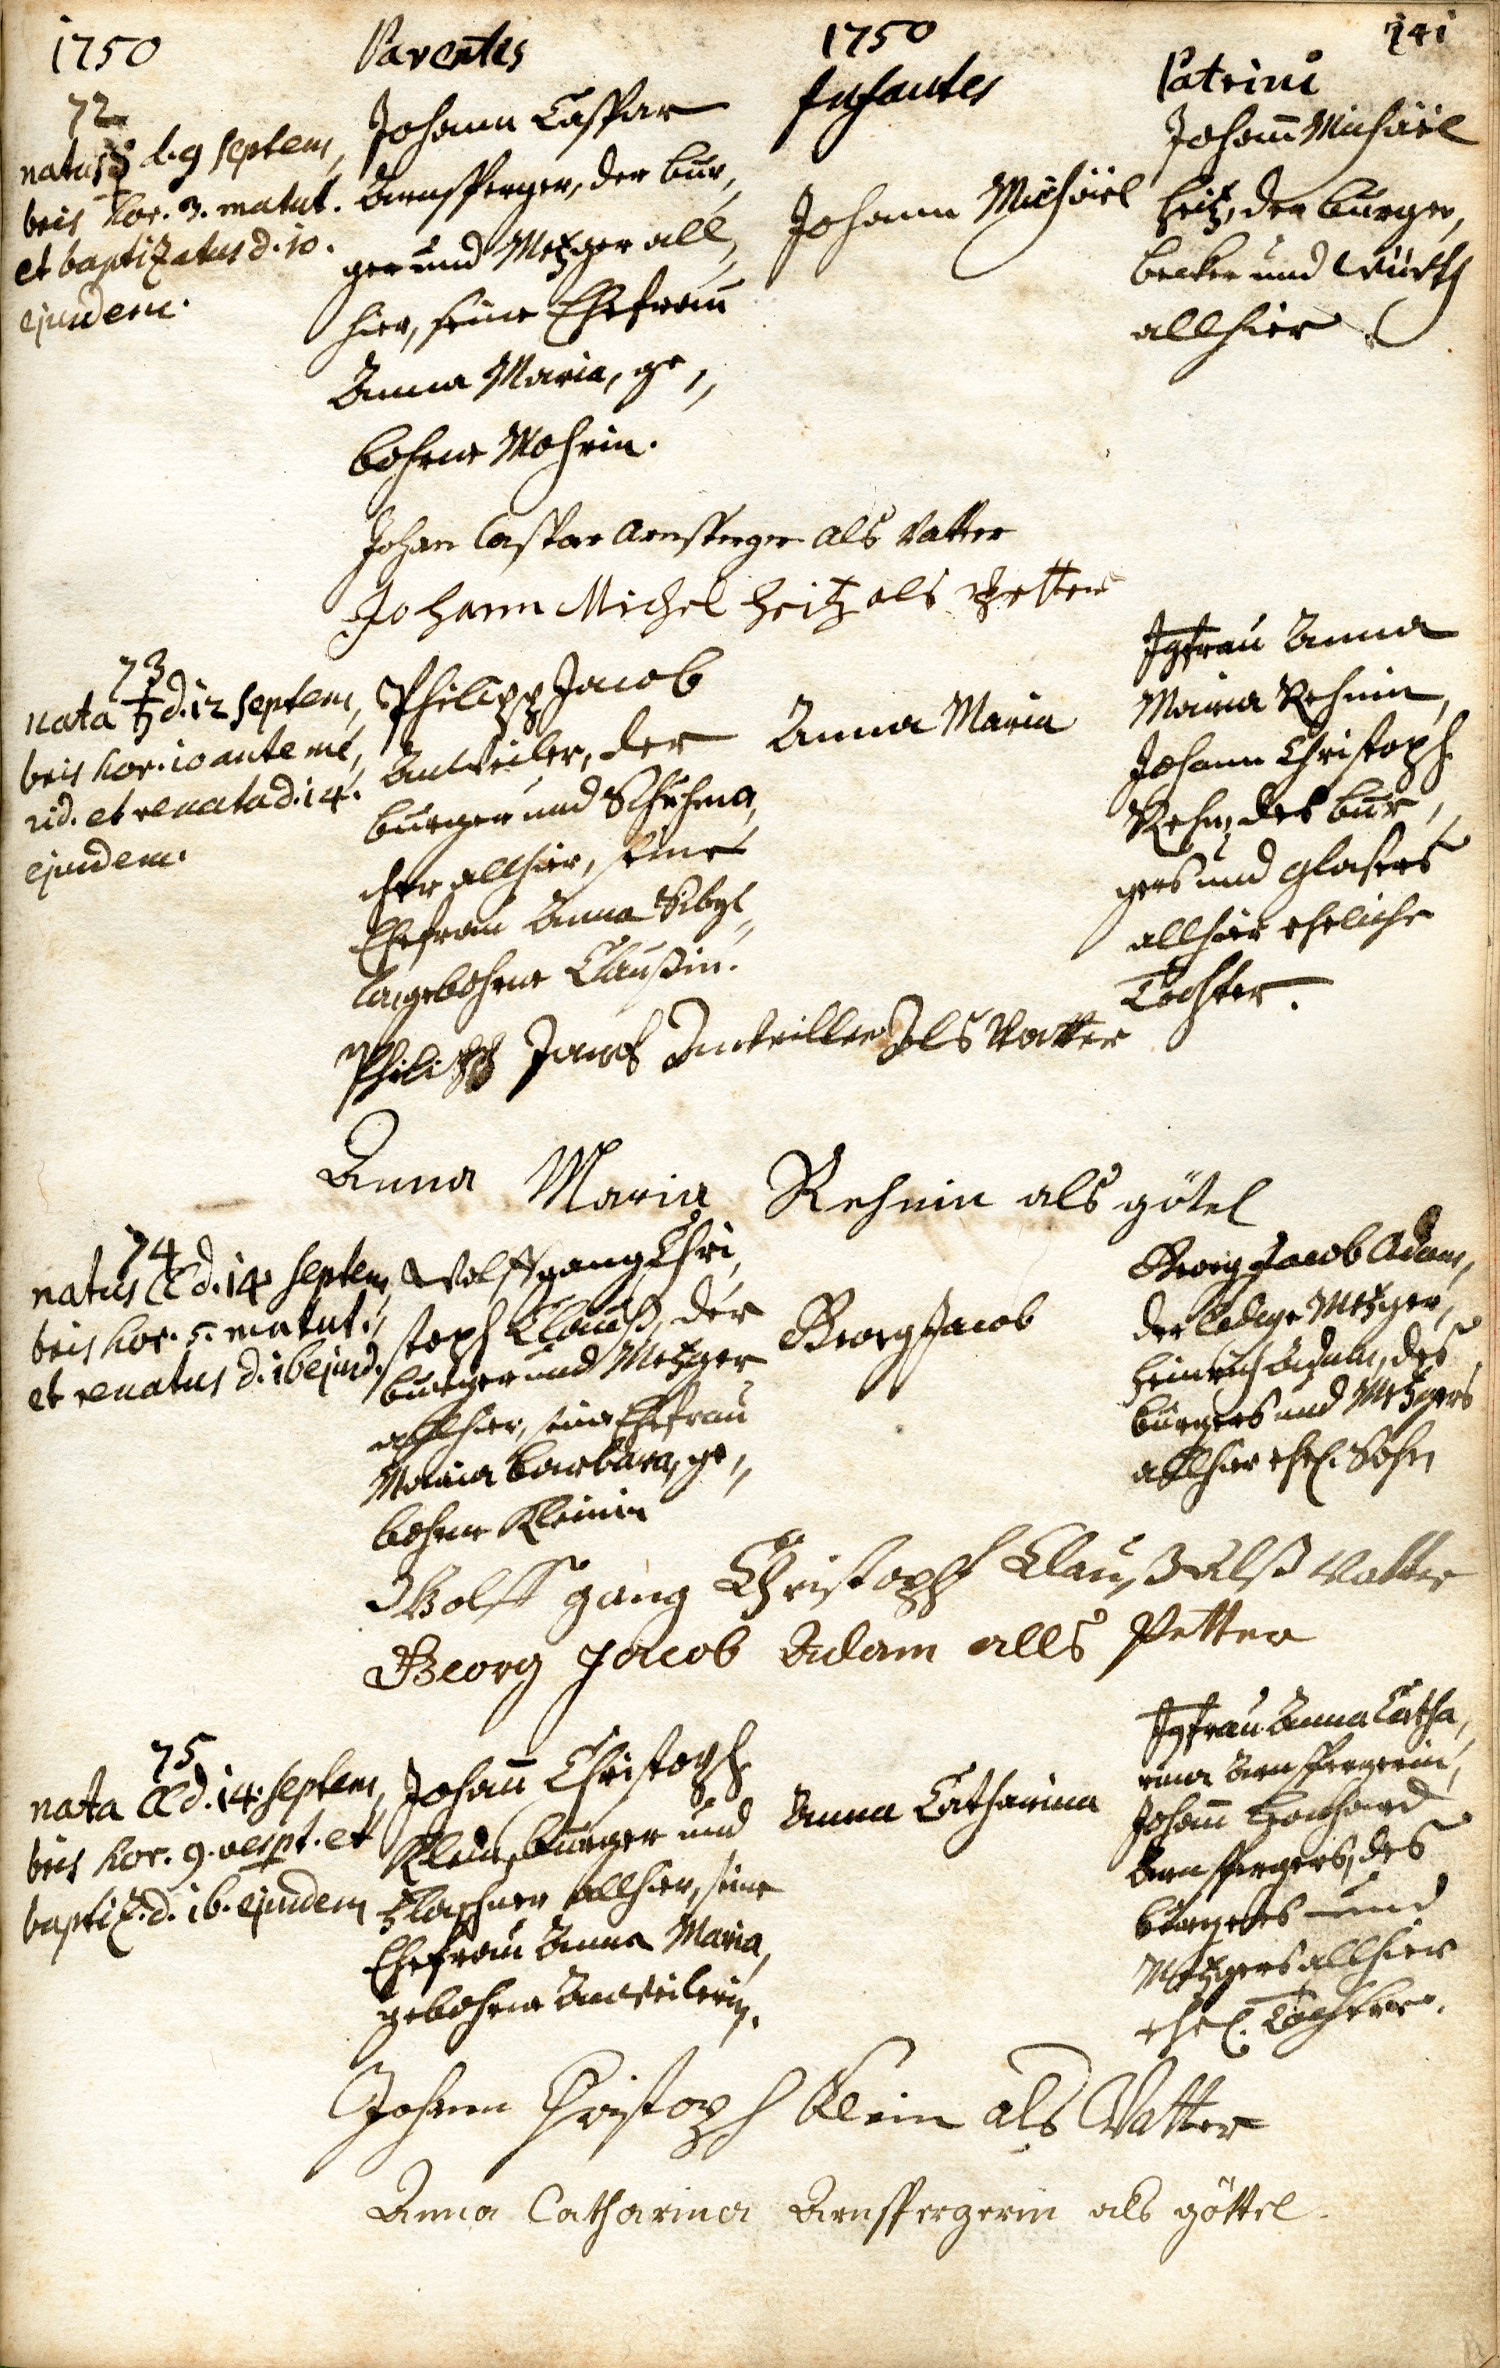 1750
Parentes
1750
Infantes
141
Patrini
72
natus d. 9 Septem,
bris hor. 3. matut.
et baptizatus d. 10.
ejusdem.
Johann Caspar
Arnsperger, der bur,
ger und Metzger all,
hier, seine Ehefrau
Anna Maria, ge,,
bohrne Mohrin.
Johann Michäel
Johann Michäel
Heitz, der burger,
becker und Würth
allhier
Johan Caspar Arnsperger als Vatter
Johann Michel Heitz als Petter
73
nata ♄ d. 12 Septem,
bris hor. 10 ante me,
rid. et renata d. 14.
ejusdem.
Philipp Jacob
Anweiler, der
burger und Schuhma,
cher allhier, seine
Ehefrau Anna Sibyl,,
la, gebohrne Claußin.
Anna Maria
Jgfrau Anna
Maria Rehmin,
Johann Christoph
Rehm, des bur,,
gers und Glasers
allhier eheliche
Tochter.
Philipp Jacob Anweiller Als Vatter
Anna Maria Rehmin als götel
74
natus ☾ d. 14 Septem,
bris hor. 5. matut.
et renatus d. 16 ejusd.
Wolffgang Chri,
stoph Clauß, der
burger und Metzger
allhier, seine Ehefrau
Maria Barbara, ge,,
bohrne Kleinin
Georg Jacob
Georg Jacob Adam,
der ledige Metzger,
Heinrich Adam, des
burgers und Metzgers
allhier ehel. Sohn
Wolff gang Christoph Clauß alß Vatter
Georg Jacob Adam alls Petter
75
nata ☾ d. 14. Septem,
bris hor. 9. vespt. et
baptiz. d. 16. ejusdem
Johann Christoph
Klein, burger und
Flaschner allhier, seine
Ehefrau Anna Maria,
gebohrne Anweilerin.
Anna Catharina
Jgfrau Anna Catha,
rina Arnspergerin,
Johann Leonhard
Arnspergers, des
burgers und
Metzgers allhier
ehel. Tochter.
Johann Christoph Klein als Vatter
Anna Catharina Arnspergerin als göttel.